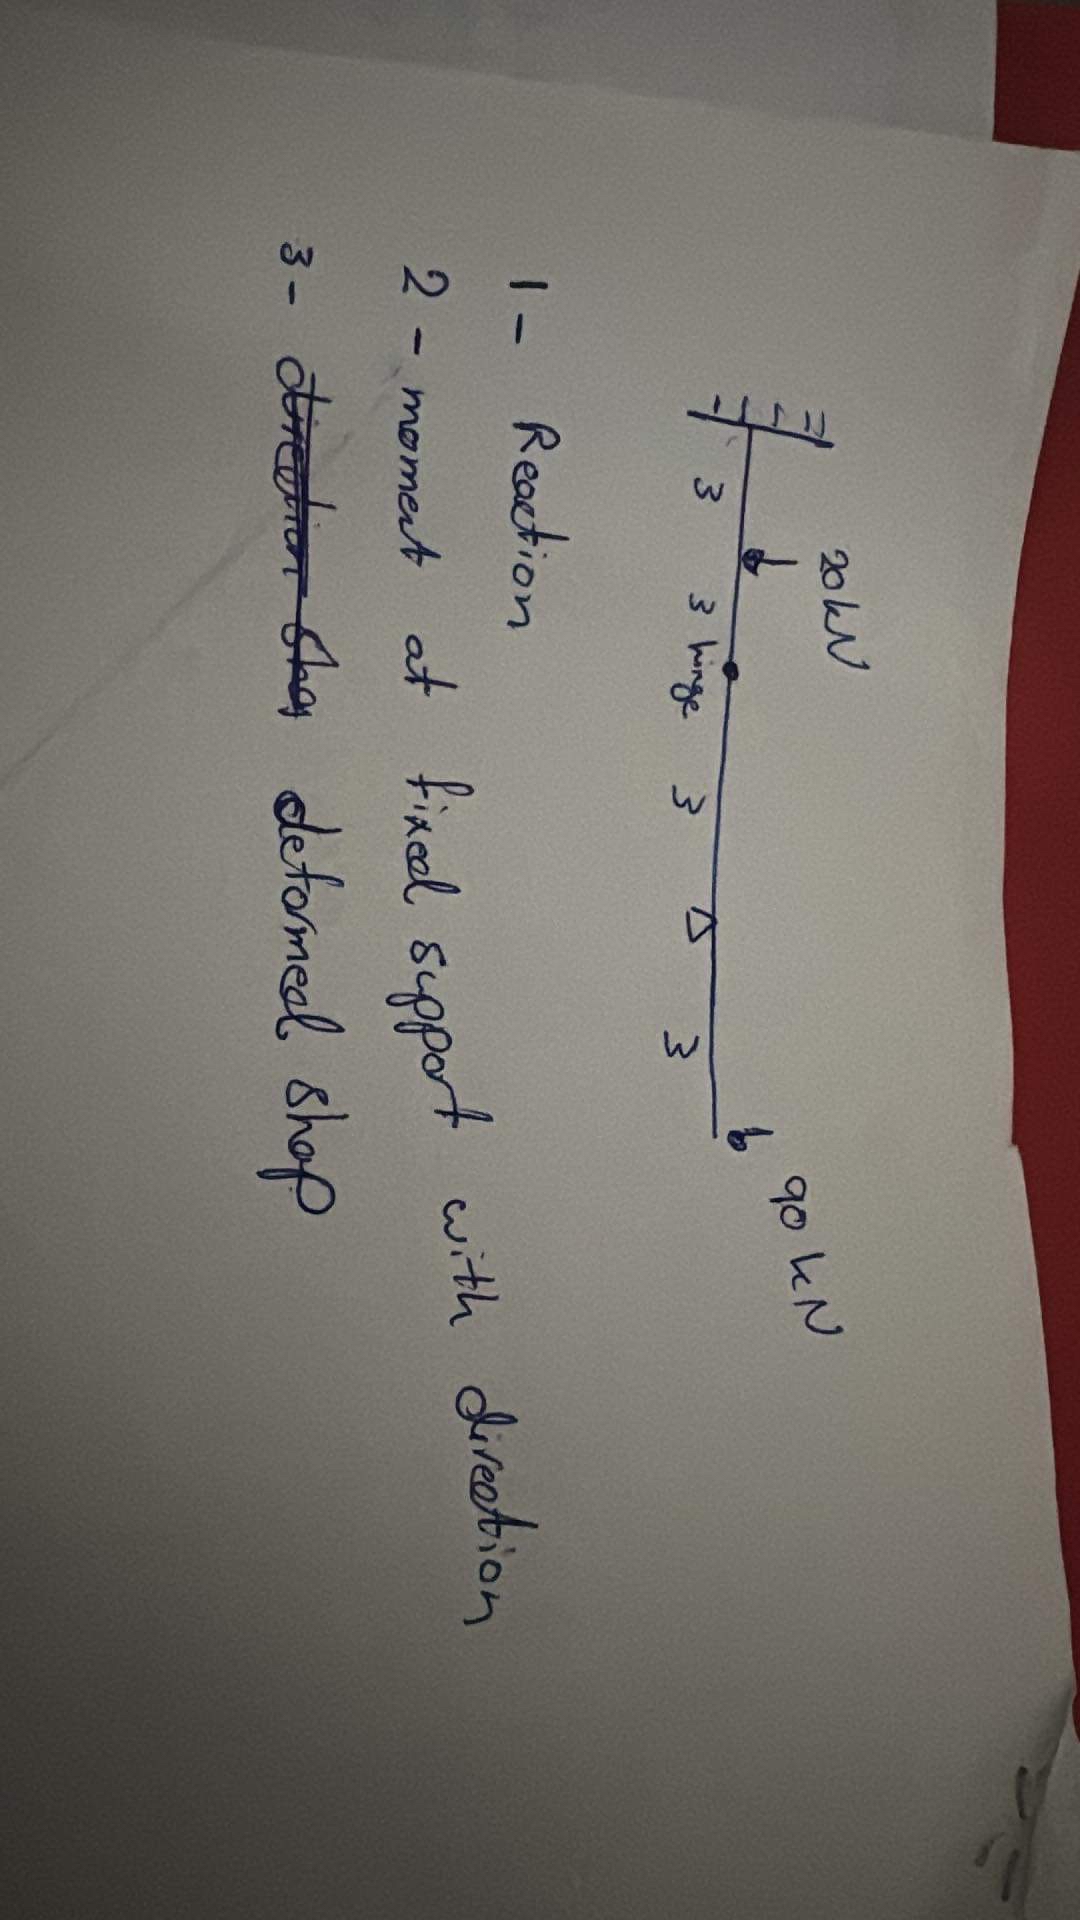 20kN 90 kN
3 3 hinge 3 3
1 - Reaction
2 - moment at fixed support with direction
3 - deformed shap